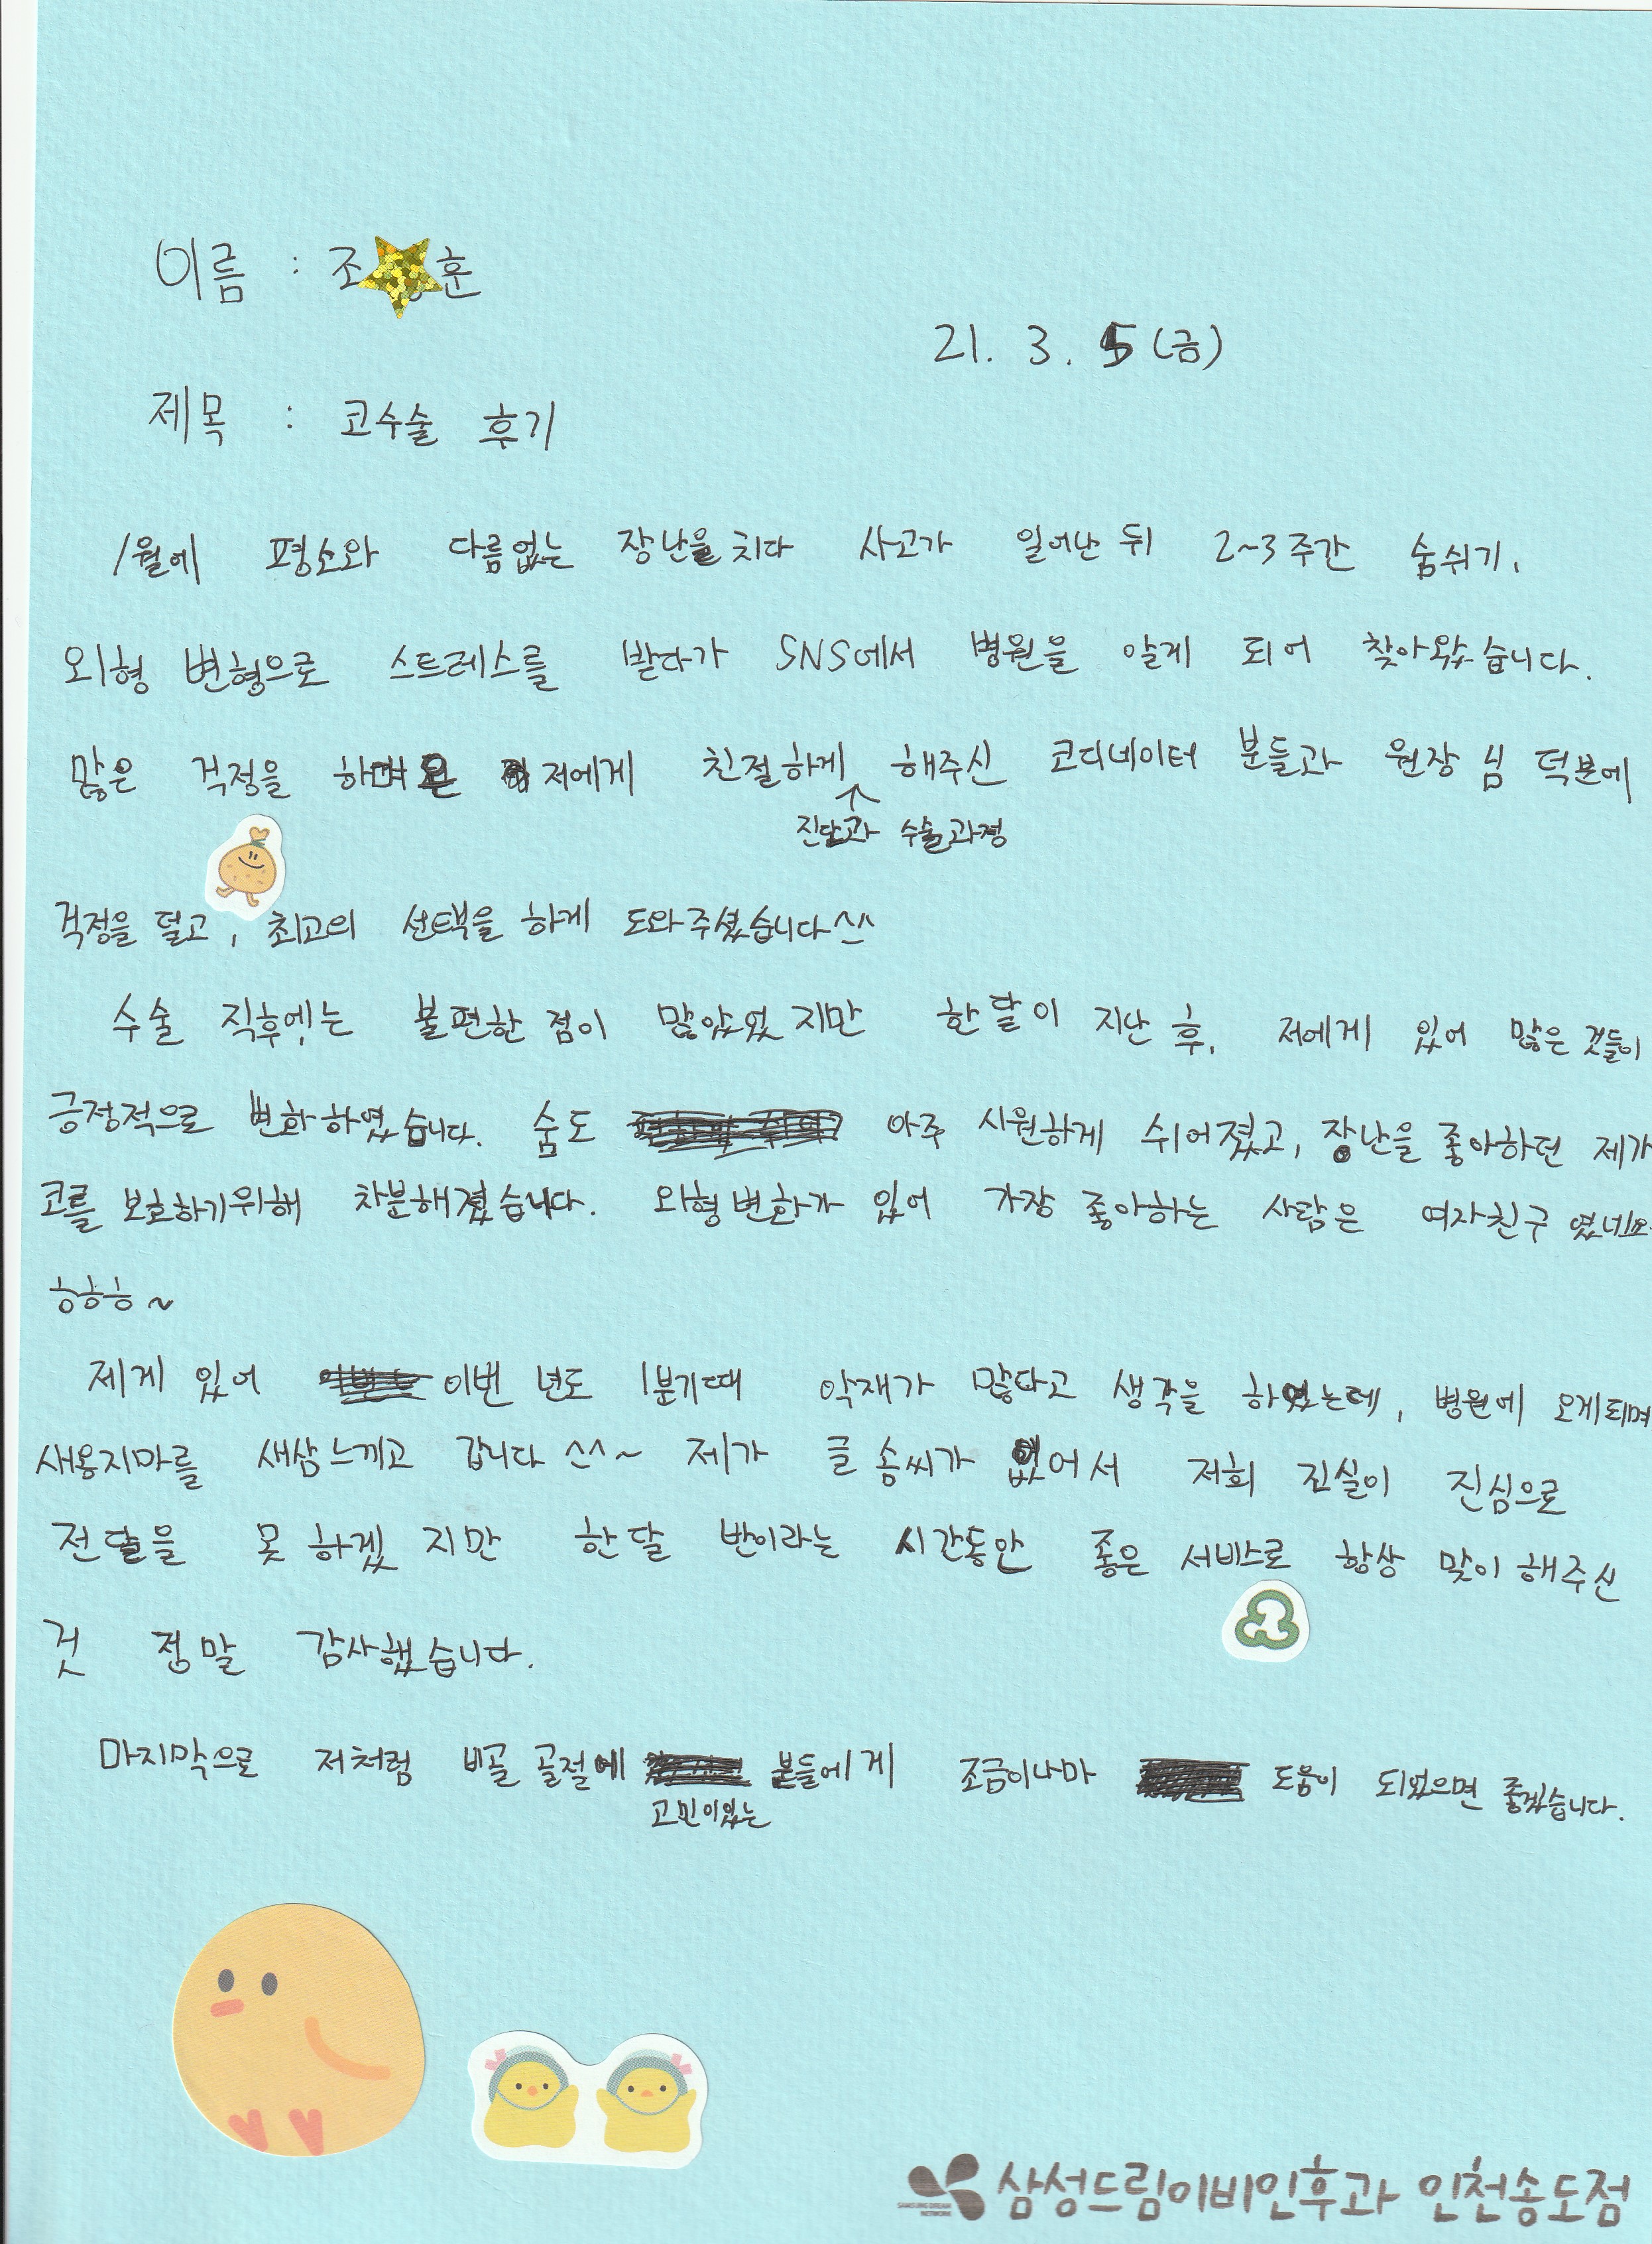 이름 : 조 훈
21. 3. 5 (금)
제목 : 코수술 후기
1월에 평소와 다름없는 장난을 치다 사고가 일어난 뒤 2~3주간 숨쉬기,
외형 변형으로 스트레스를 받다가 SNS에서 병원을 알게 되어 찾아왔습니다.
많은 걱정을 하며 저에게 친절하게 해주신 코디네이터 분들과 원장님 덕분에
진단과 수술과정
걱정을 덜고, 최고의 선택을 하게 도와주셨습니다^^
수술 직후에는 불편한 점이 많았었지만 한달이 지난 후, 저에게 있어 많은 것들이
긍정적으로 변화하였습니다. 숨도 아주 시원하게 쉬어졌고, 장난을 좋아하던 제가
코를 보호하기위해 차분해졌습니다. 외형변화가 있어 가장 좋아하는 사람은 여자친구였네요
ㅎㅎㅎ~
제게 있어 이번 년도 1분기때 악재가 많다고 생각을 하였는데, 병원에 오게되며
새옹지마를 새삼느끼고 갑니다 ^^~ 제가 글 솜씨가 없어서 저희 진실이 진심으로
전달을 못 하겠지만 한달 반이라는 시간동안 좋은 서비스로 항상 맞이해주신
것 정말 감사했습니다.
마지막으로 저처럼 비골 골절에 분들에게 조금이나마 도움이 되었으면 좋겠습니다.
고민이있는
삼성드림이비인후과 인천송도점